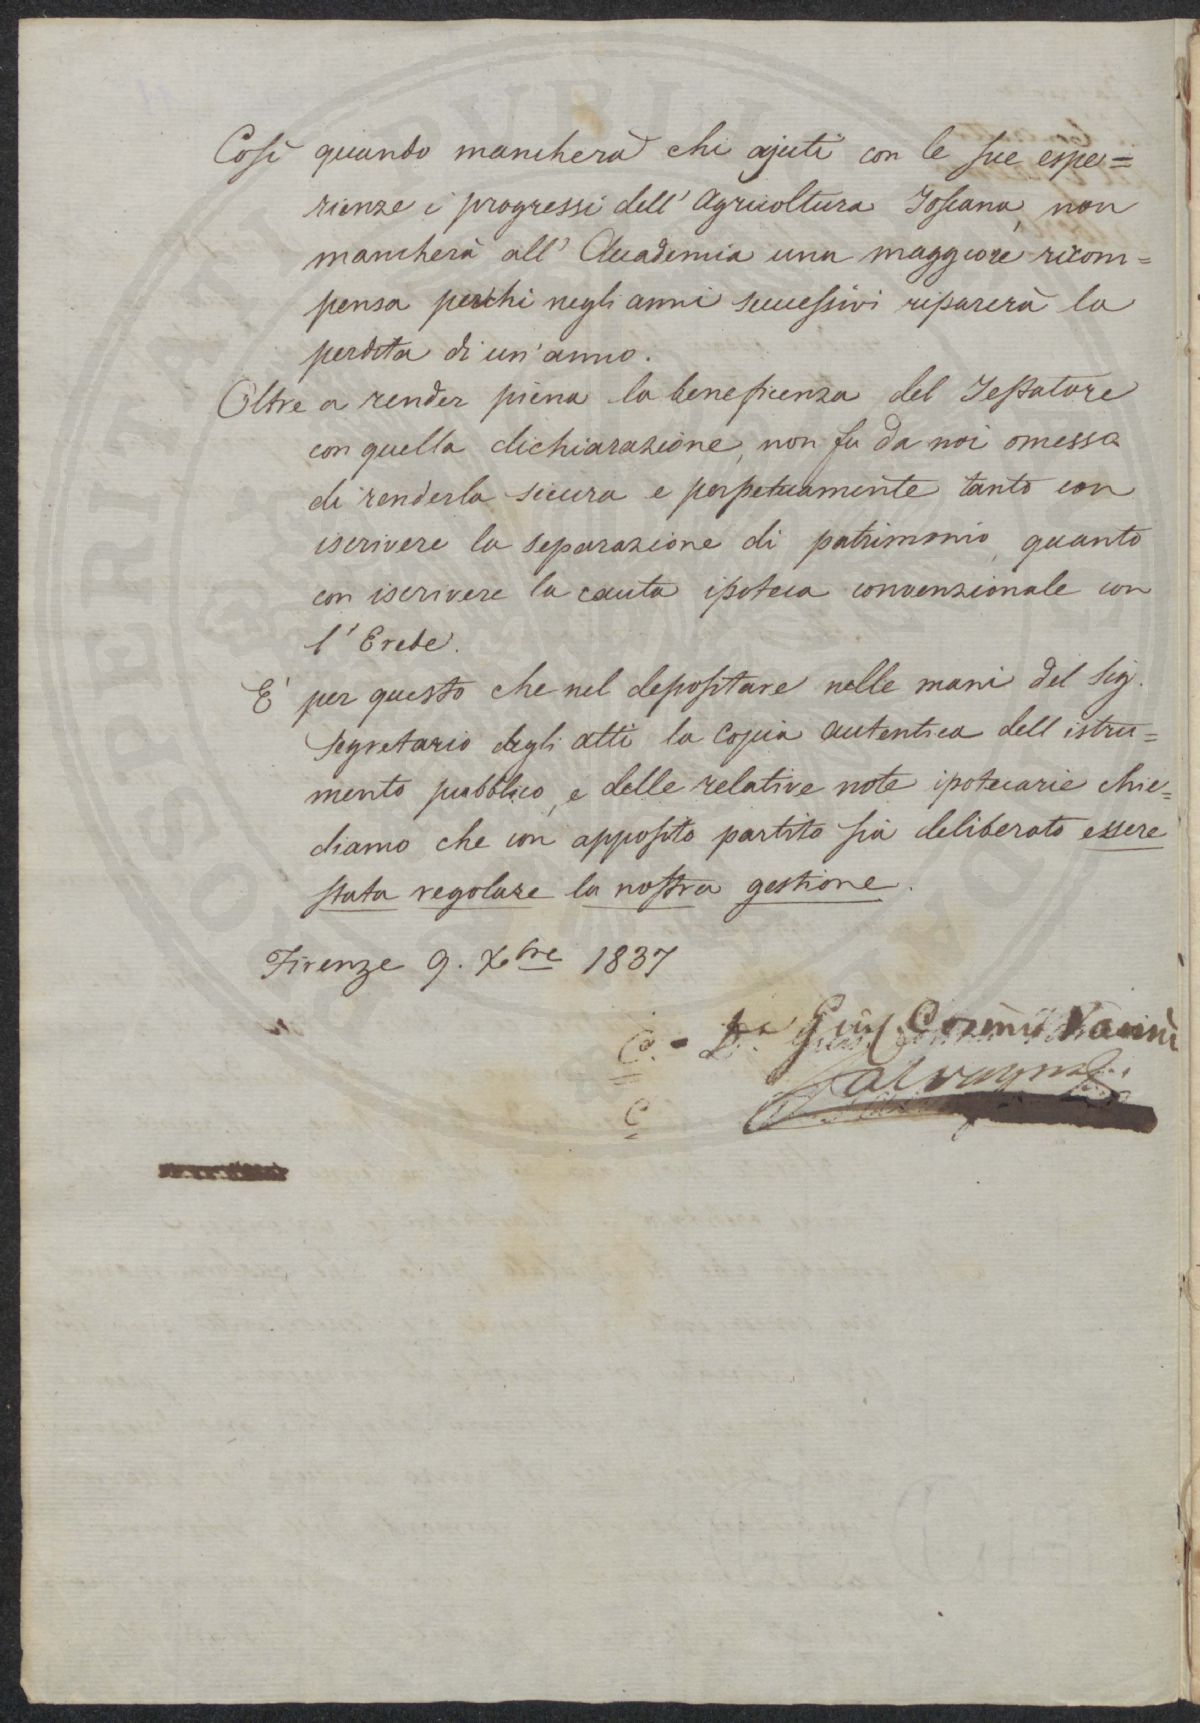 Così quando mancherà chi ajuti con le sue espe=
rienze i progressi dell' Agricoltura Toscana, non
mancherà all' Accademia una maggiore ricom=
pensa perchi negli anni successivi riparerà la
perdita di un' anno.
Oltre a render piena la beneficenza del Testatore
con quella dichiarazione, non fu da noi omessa
di renderla sicura e perpetuamente tanto con
iscrivere la separazione di patrimonio, quanto
con iscrivere la cauta ipoteca convenzionale con
l' Erede.
E' per questo che nel depositare nelle mani del Sig.
Segretario degli atti la Copia autentica dell istru=
mento pubblico, e delle relative note ipotecarie chie=
diamo che con apposito partito sia deliberato essere
stata regolare la nostra gestione.
Firenze 9. Xbre 1837
C. - Cosimo Vanni
C Salvagnoli